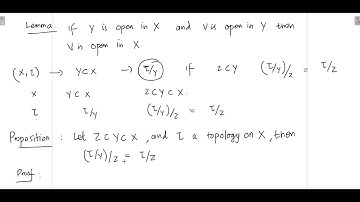 Lemma If Y is open in X and V is open in Y then
V is open in X.
(X,τ) → Y⊂X → τ/Y if Z⊂Y (τ/Y)/Z = τ/Z
X Y⊂X Z⊂Y⊂X.
τ τ/Y (τ/Y)/Z = τ/Z
Proposition : Let Z⊂Y⊂X, and τ a topology on X, then
(τ/Y)/Z = τ/Z
Proof :